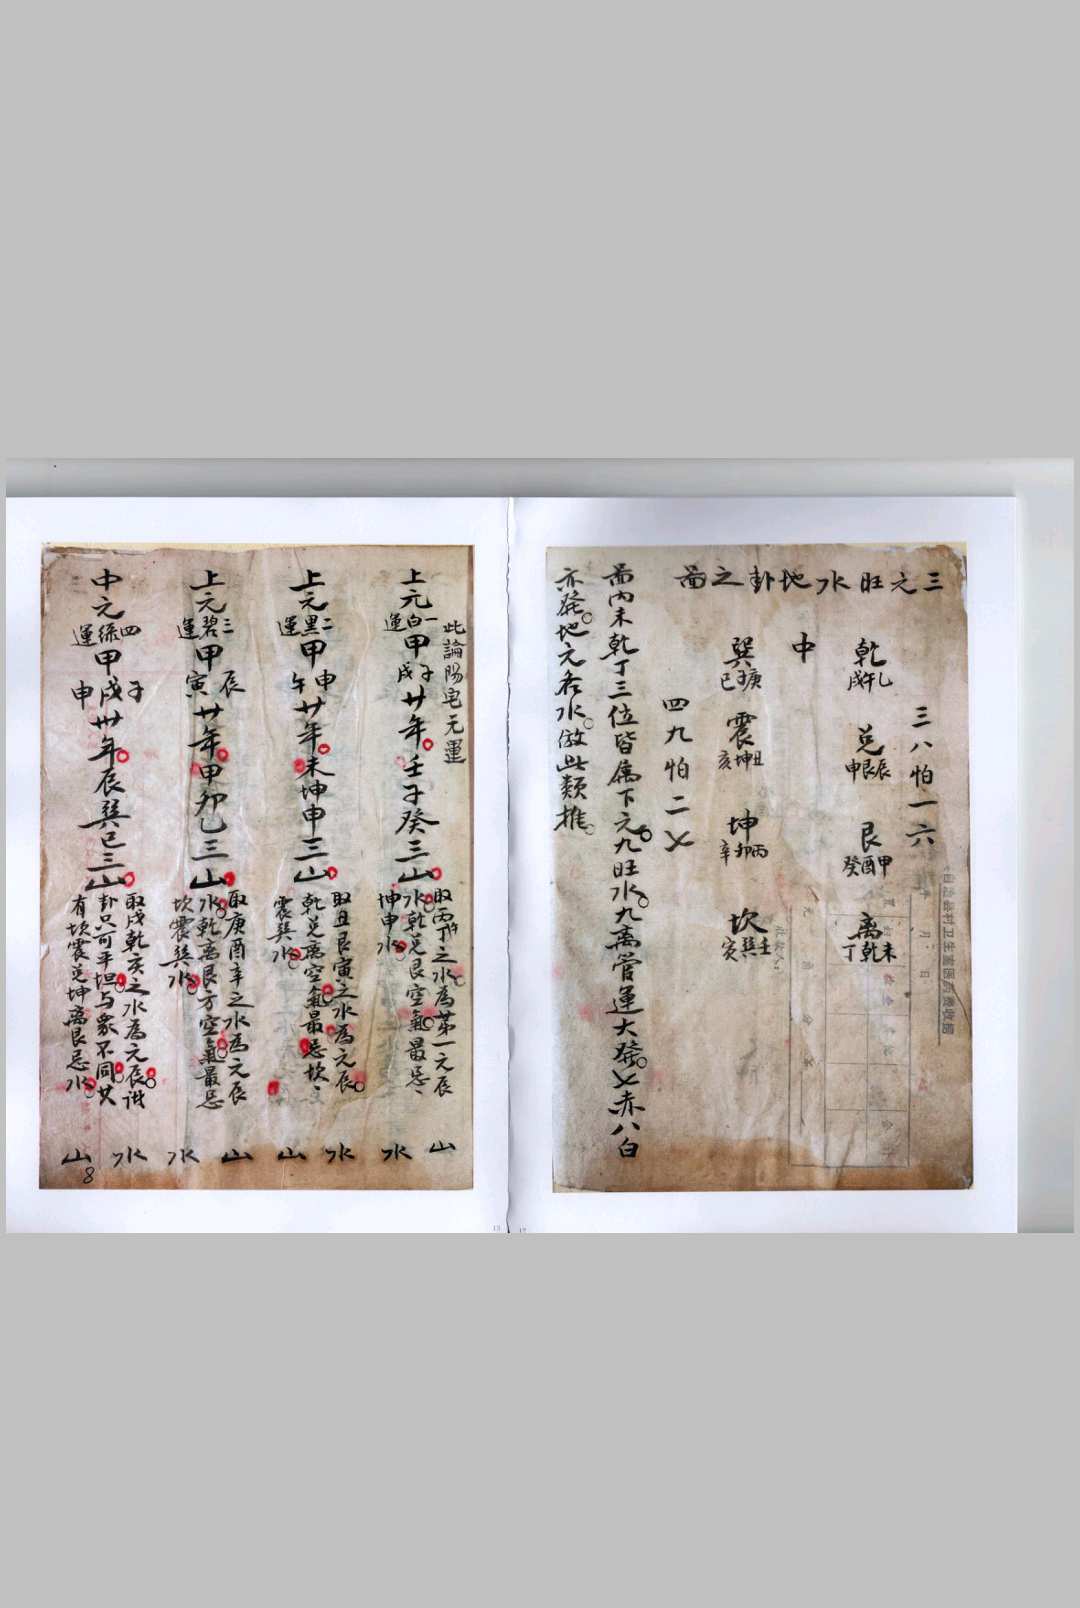 三元旺水地卦之圖
三八怕一六
乾
乙午戌
兌
辰艮申
艮
甲酉癸
離
未乾丁
中
巽
庚子巳
震
丑坤亥
坤
丙卯辛
坎
壬巽寅
四九怕二七
圖內未乾丁三位皆屬下元九旺水九离管運大發七赤八白
亦發地元各水倣此類推
此論陽宅元運
上元一白運甲子戌廿年壬子癸三山
取丙午丁之水為第一元辰
水乾兌艮空氣最忌
坤申水
山 水
上元二黑運甲申午廿年未坤申三山
取丑艮寅之水為元辰
乾兌离空氣最忌坎
震巽水
水 山
上元三碧運甲辰寅廿年甲卯乙三山
取庚酉辛之水為元辰
水乾离艮方空氣最忌
坎震巽水
山 水
中元四綠運甲子戌申卅年辰巽巳三山
取戌乾亥之水為元辰
卦只可平坦与衆不同其
有坎震兌坤离艮忌水
水 山
8